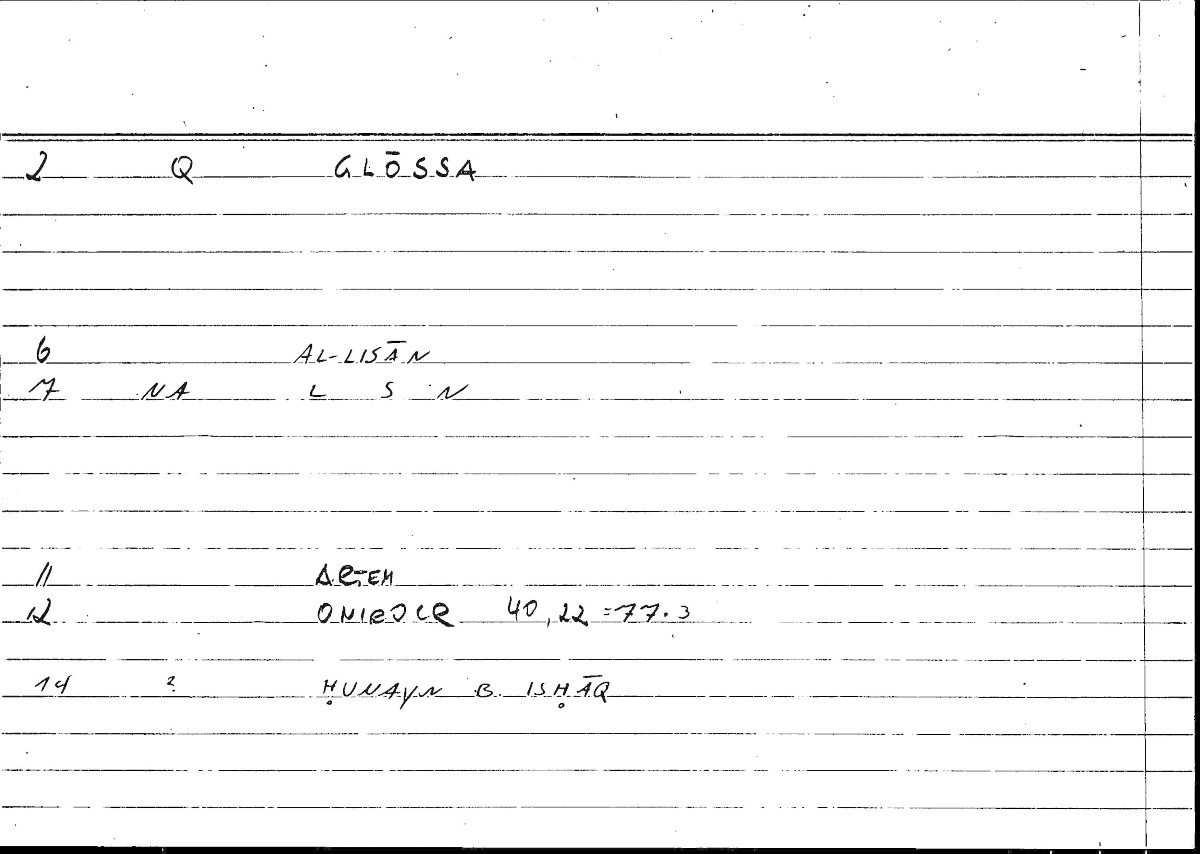 2 Q GLŌSSA
6 AL-LISĀN
7 NA L S N
11 ARTEM
12 ONIROCR 40,22=77.3
14 ? ḤUNAYN B. ISḤĀQ